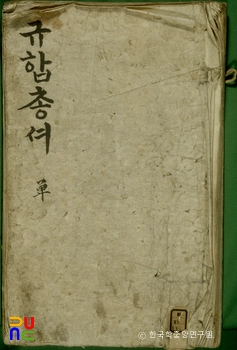 규합총셔
單
ⓒ 한국학중앙연구원